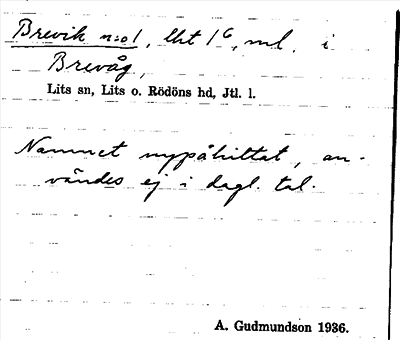 Brevik n:o 1, lht 1⁶, ml. i
Brevåg,
Lits sn, Lits o. Rödöns hd, Jtl. l.
Namnet nypåhittat, an-
vändes ej i dagl. tal.
A. Gudmundson 1936.